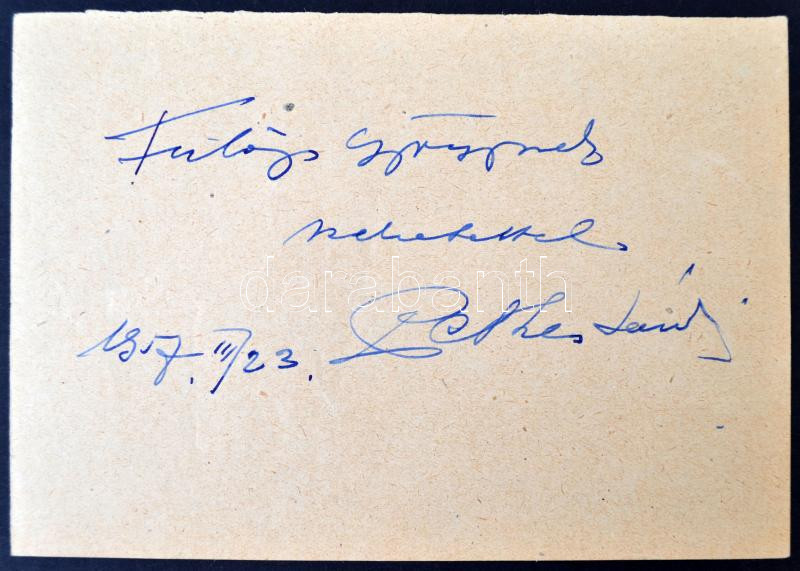 Fülöp Györgynek
szeretettel
1957. III/23. Pethes Sándor
darabanth